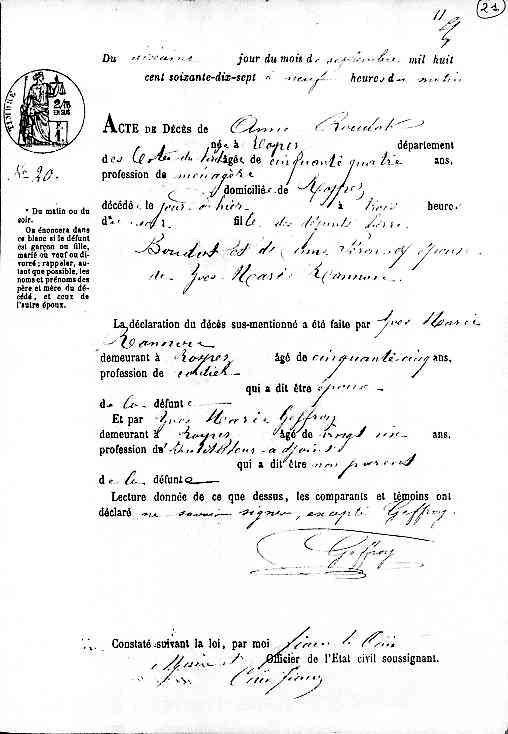 11
21
Du jour du mois de septembre mil huit
cent soixante-dix-sept à neuf heures du matin
TIMBRE
ACTE DE DÉCÈS de Anne
née à département
des Côtes du Nord âgée de cinquante quatre ans,
No 20.
profession de ménagère
domiciliée de
décédée le jour d'hier à trois heures
* Du matin ou du
soir.
du soir fille des défunts
On énoncera dans
ce blanc si le défunt
est garçon ou fille,
marié ou veuf ou di-
vorcé ; rappeler, au-
tant que possible, les
noms et prénoms des
père et mère du dé-
cédé, et ceux de
l'autre époux.
et de épouse
de Yves Marie
La déclaration du décès sus-mentionné a été faite par Yves Marie
demeurant à âgé de cinquante-cinq ans,
profession de
qui a dit être époux
de la défunte
Et par Yves Marie Geffroy
demeurant à âgé de vingt ans,
profession d'instituteur-adjoint
qui a dit être non parent
de la défunte
Lecture donnée de ce que dessus, les comparants et témoins ont
déclaré ne savoir signer, excepté Geffroy.
Geffroy
Constaté suivant la loi, par moi
Maire et Officier de l'État civil soussigné.